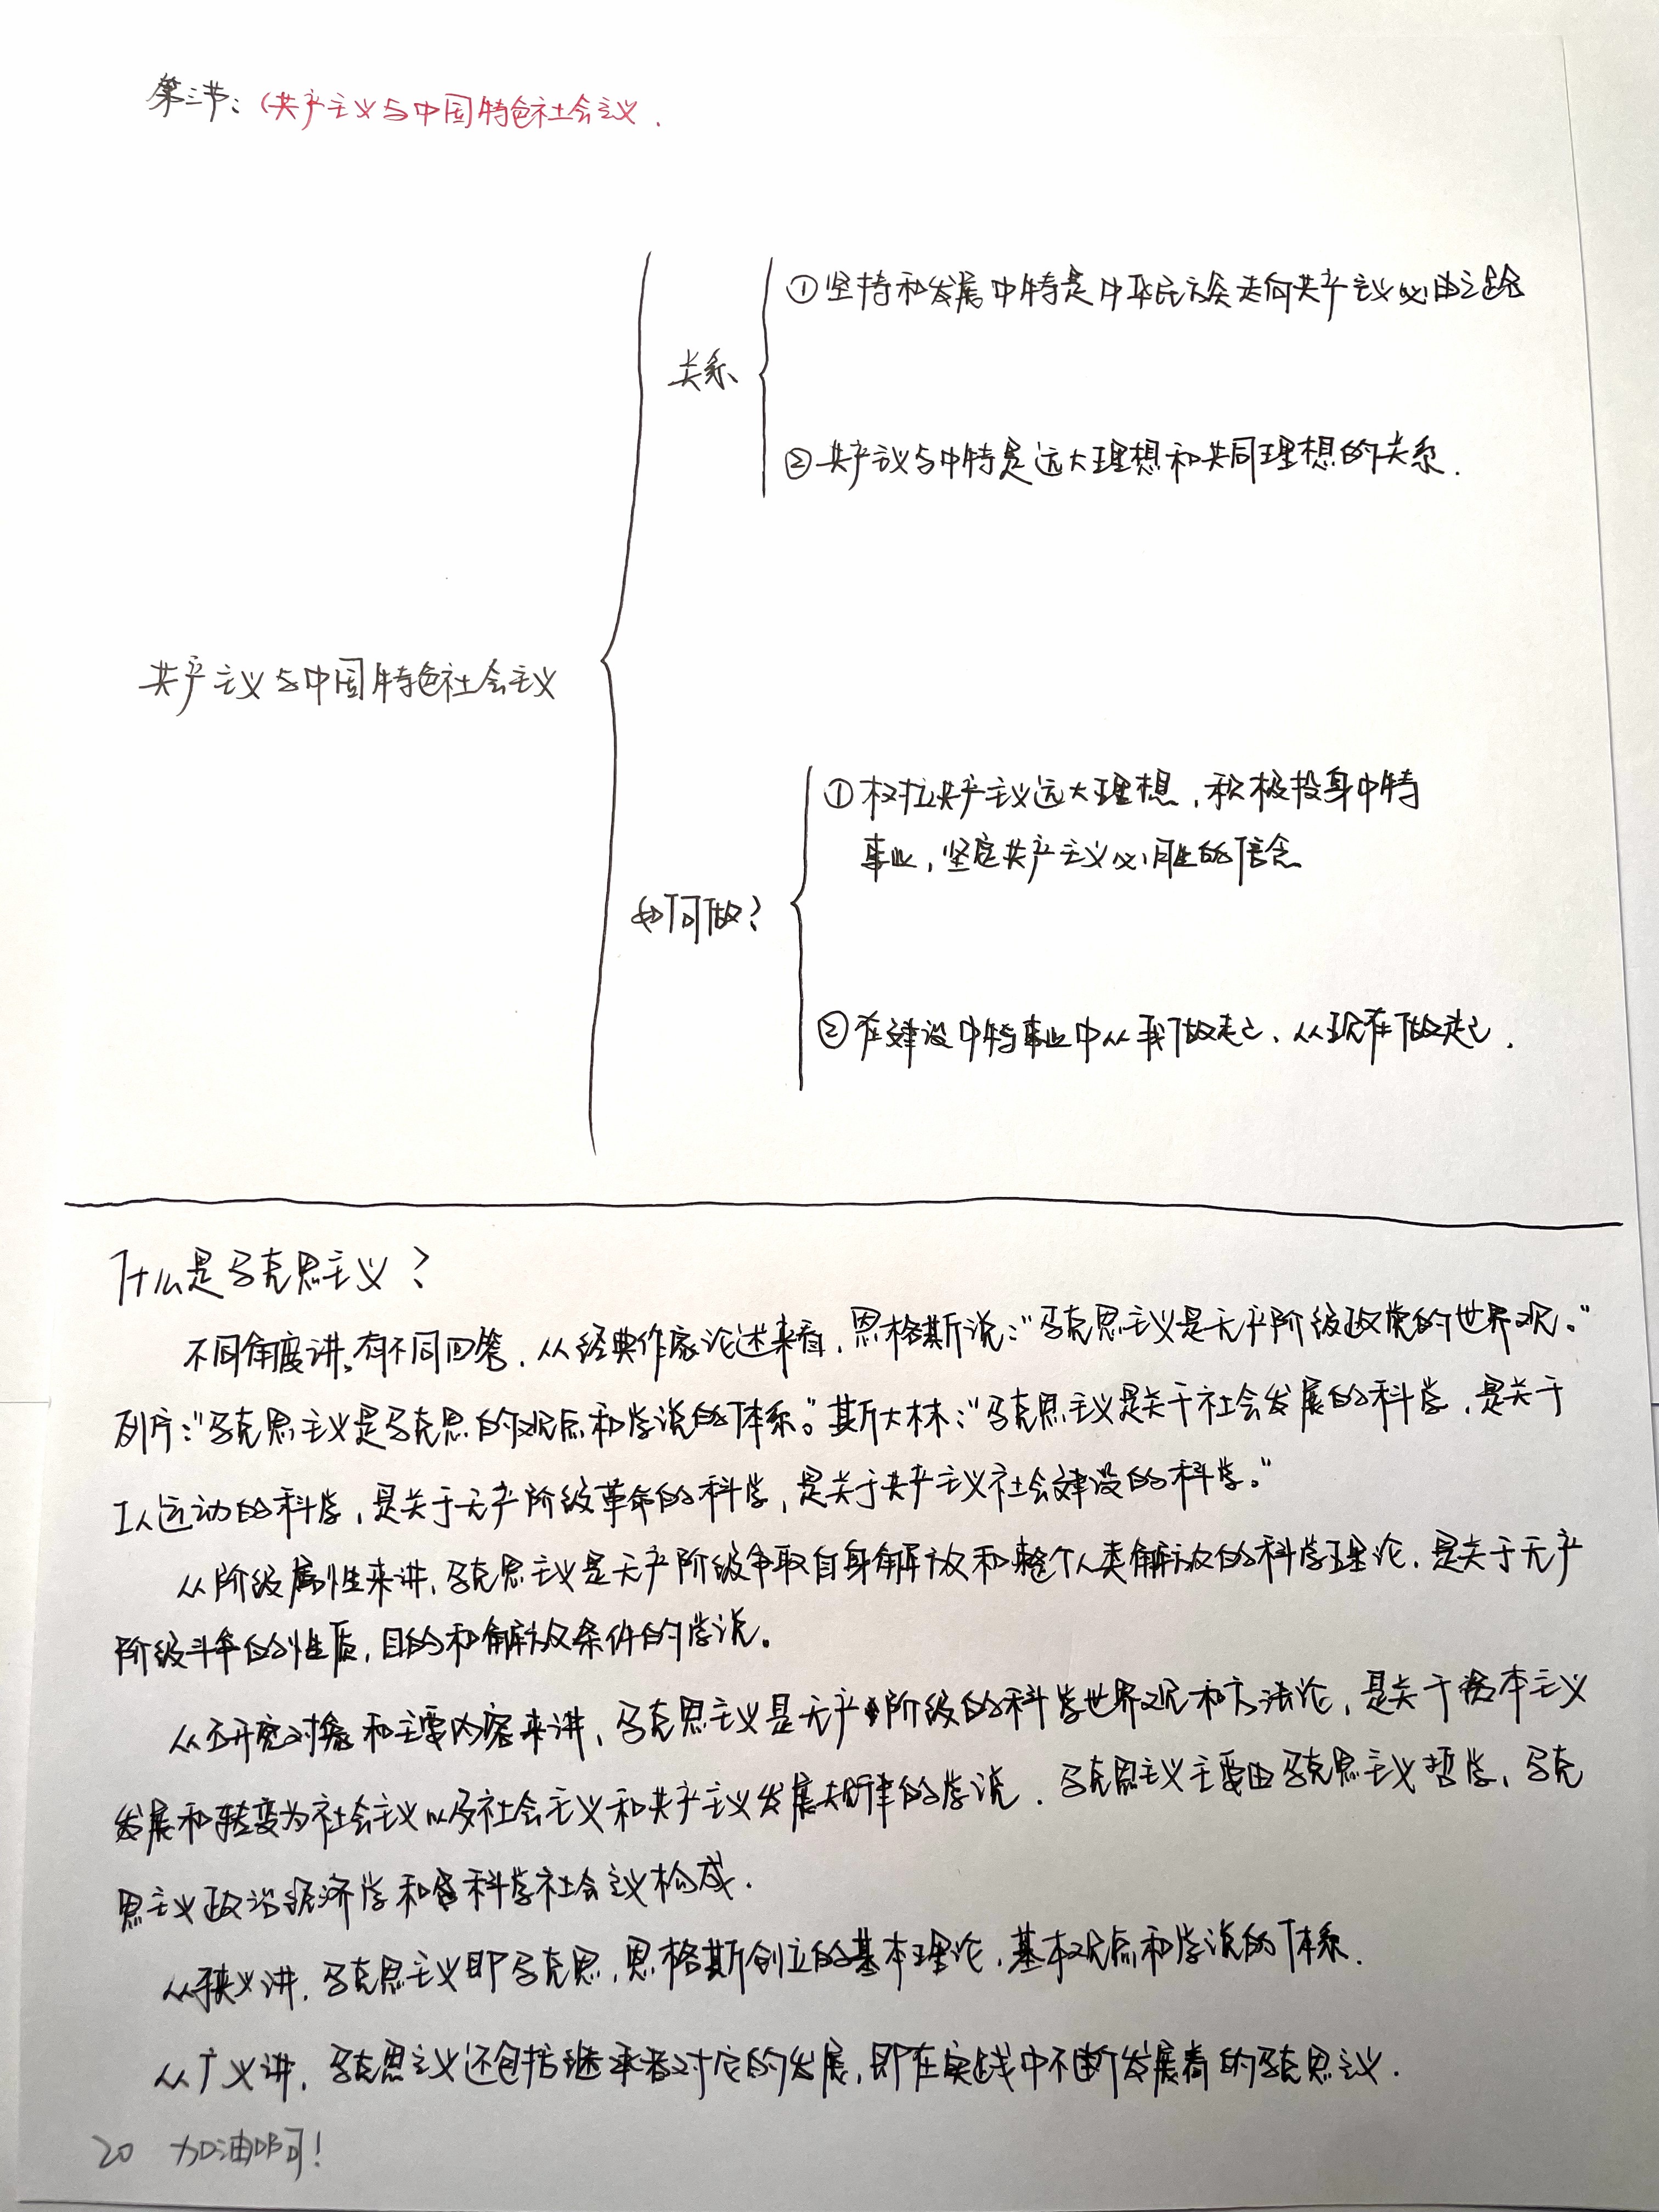 第三节：共产主义与中国特色社会主义.
关系
①坚持和发展中特是中华民族走向共产主义必由之路
②共产主义与中特是远大理想和共同理想的关系.
共产主义与中国特色社会主义
如何做？
①树立共产主义远大理想，积极投身中特
事业，坚定共产主义必胜的信念
②在建设中特事业中从我做起、从现在做起.
什么是马克思主义？
不同角度讲，有不同回答．从经典作家论述来看，恩格斯说：“马克思主义是无产阶级政党的世界观。”
列宁：“马克思主义是马克思的观点和学说的体系。”斯大林：“马克思主义是关于社会发展的科学，是关于
工人运动的科学，是关于无产阶级革命的科学，是关于共产主义社会建设的科学。”
从阶级属性来讲，马克思主义是无产阶级争取自身解放和整个人类解放的科学理论．是关于无产
阶级斗争的性质，目的和解放条件的学说。
从研究对象和主要内容来讲，马克思主义是无产阶级的科学世界观和方法论，是关于资本主义
发展和转变为社会主义以及社会主义和共产主义发展规律的学说．马克思主义主要由马克思主义哲学，马克
思主义政治经济学和科学社会主义构成．
从狭义讲，马克思主义即马克思，恩格斯创立的基本理论，基本观点和学说的体系．
从广义讲，马克思主义还包括继承者对它的发展，即在实践中不断发展着的马克思主义．
20 加油啊！